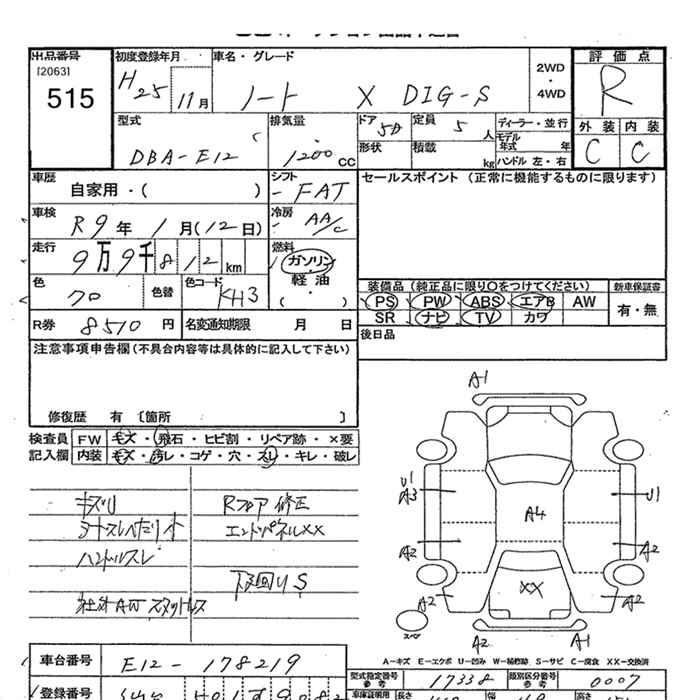 出品番号 初度登録年月 車名・グレード 2WD・4WD 評価点
[2063]
515 H25 11月 ノート X DIG-S R
型式 排気量 ドア 5D 定員 5人 ディーラー・並行 外装 内装
DBA-E12 1200CC 形状 積載 kg モデル年式 年 ハンドル 左・右 C C
車歴 シフト セールスポイント (正常に機能するものに限ります)
自家用・( ) FAT
車検 R9年 1月(12日) 冷房 AA/C
走行 9万9千812km 燃料 ガソリン・軽油 ( )
色 70 色替 色コード KH3 装備品 (純正品に限り○をつけてください) 新車保証書
PS PW ABS エアB AW 有・無
R券 8510円 名変通知期限 月 日 SR ナビ TV カワ
注意事項申告欄(不具合内容等は具体的に記入して下さい) 後日品
修復歴 有 〔箇所 〕
検査員 FW キズ・飛石・ヒビ割・リペア跡・×要
記入欄 内装 キズ・汚レ・コゲ・穴・スレ・キレ・破レ
A1
キズリ Rフロア修正
シートスレへたり小 エンドパネルXX
ハンドルスレ
下回りS
社外AWスタッドレス
U1
A3
U1
A4
A2
A2
A2
XX
A2
スペア
A2
A1
A-キズ E-エクボ U-凹み W-補修跡 S-サビ C-腐食 XX-交換済
車台番号 E12-178219 型式指定番号 17338 類別区分番号 0007
登録番号